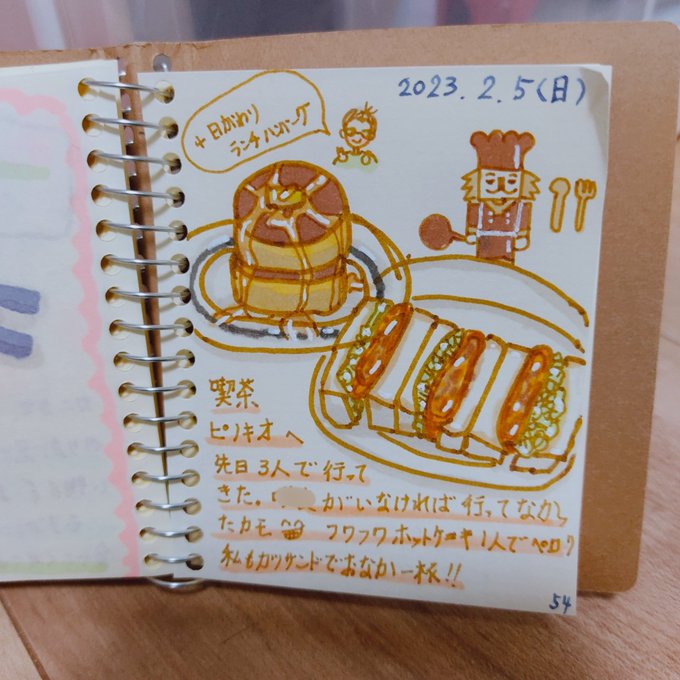 2023.2.5(日)
+日がわり
ランチハンバーグ
喫茶
ピノキオへ
先日3人で行って
きた。 がいなければ行ってなかっ
たカモ フワフワホットケーキ1人でペロリ
私もカツサンドでおなか一杯!!
54